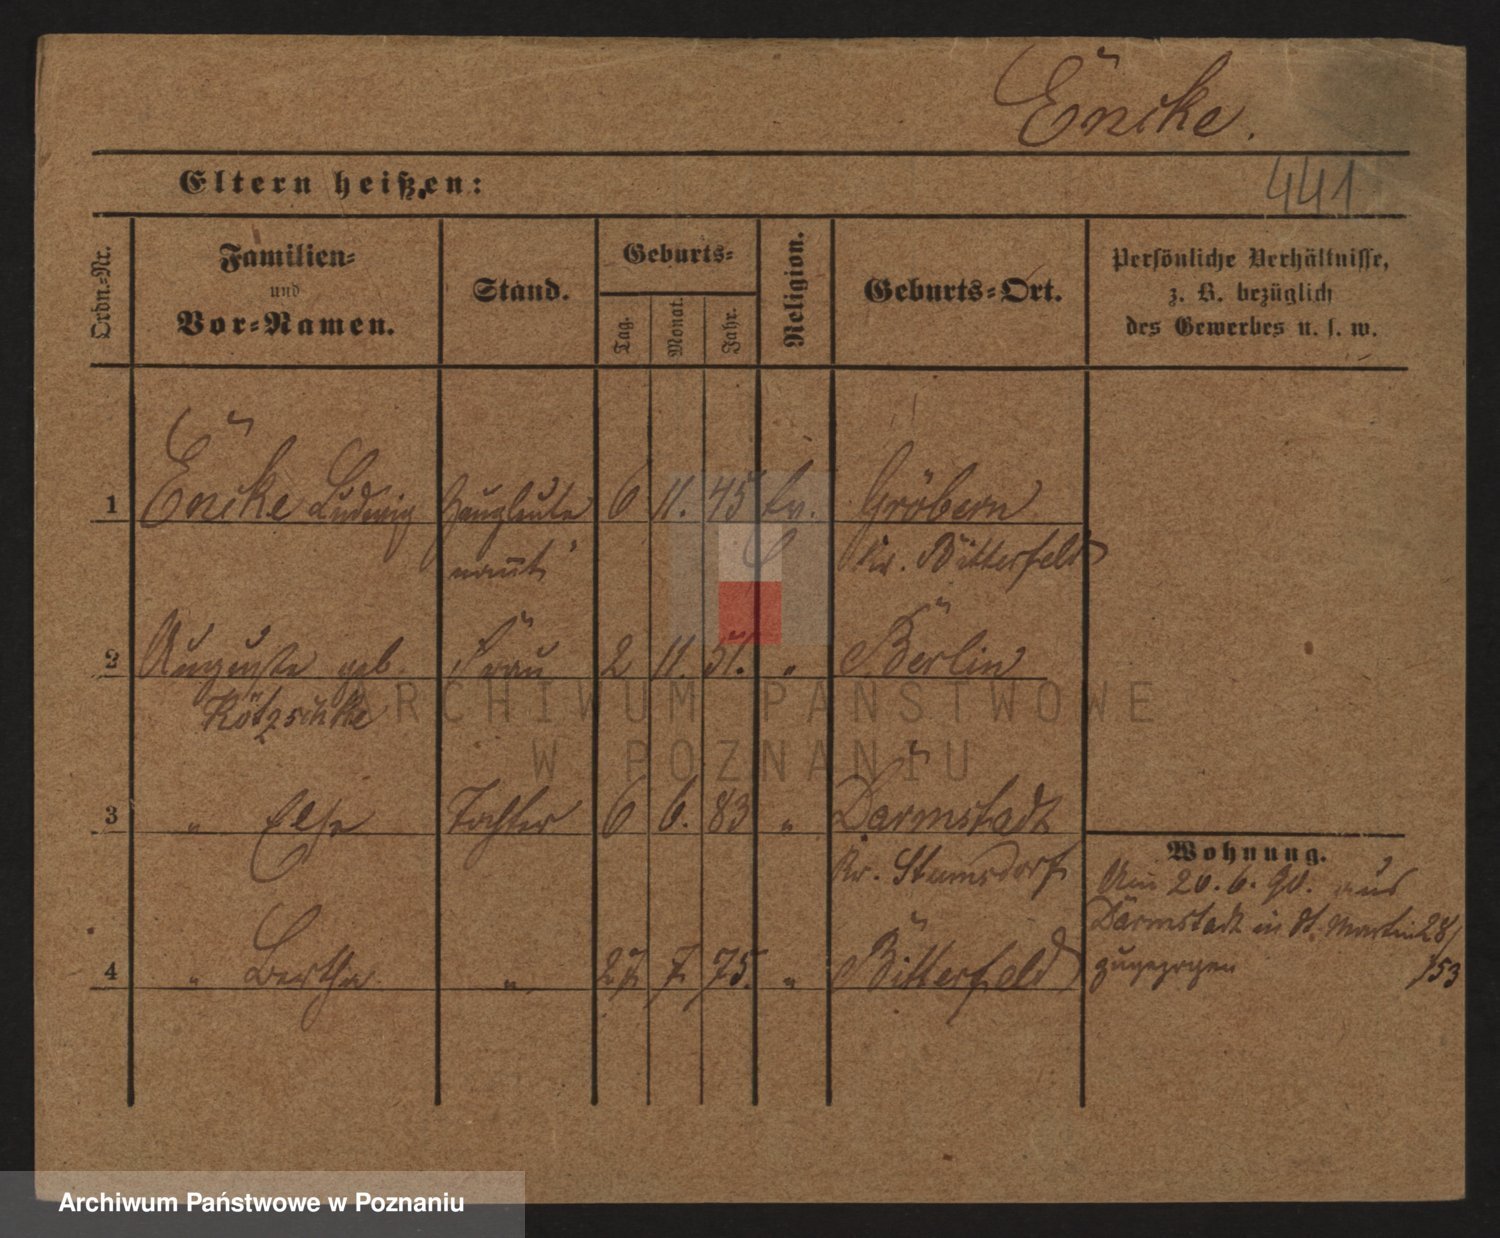 Encke.
441
Eltern heißen:
Ordn.-Nr.
Familien-
und
Vor-Namen.
Stand.
Geburts-
Tag.
Monat.
Jahr.
Religion.
Geburts-Ort.
Persönliche Verhältnisse,
z. B. bezüglich
des Gewerbes u. s. w.
1 Encke Ludwig 6 11. 45 Ev. Gröbern
Kr. Bitterfeld
2 Auguste geb. Frau 2 11. 51. " Berlin
Kötzschke
3 " Else Tochter 6 6. 83 " Darmstadt
Kr.
Wohnung.
Am 20. 6. 90. aus
Darmstadt in St. Martin 28/
zugezogen /53
4 " Bertha " 27. 7. 75. " Bitterfeld
ARCHIWUM PAŃSTWOWE
W POZNANIU
Archiwum Państwowe w Poznaniu